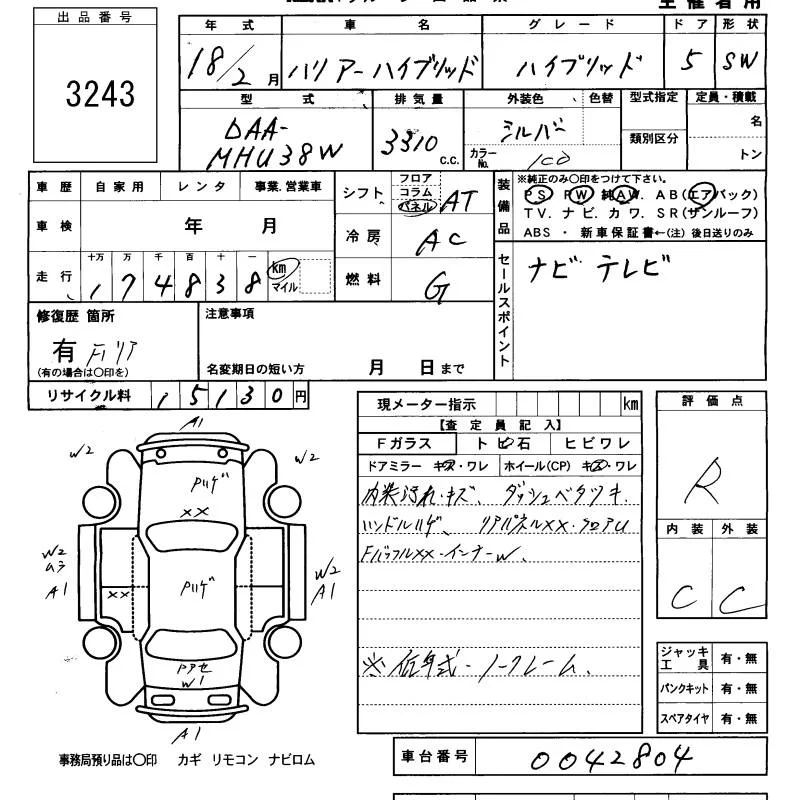 出品番号
3243
年式 車名 グレード ドア 形状
18/2月 ハリアーハイブリッド ハイブリッド 5 SW
型式 排気量 外装色 色替 型式指定 定員・積載
DAA-MHU38W 3310 c.c. シルバー 類別区分 名
カラーNo. 1C0 トン
車歴 自家用 レンタ 事業.営業車
車検 年 月
走行 十万 万 千 百 十 一
174838 km マイル
シフト フロア コラム パネル AT
冷房 AC
燃料 G
装備品 ※純正のみ〇印をつけて下さい。
PS PW 純AW. AB(エアバック)
TV. ナビ. カワ. SR(サンルーフ)
ABS ・ 新車保証書←(注) 後日送りのみ
セールスポイント
ナビ テレビ
修復歴 箇所
有 F.リア
(有の場合は〇印を)
注意事項
名変期日の短い方 月 日まで
リサイクル料 15130円
現メーター指示 km
【査定員記入】
Fガラス トビ石 ヒビワレ
ドアミラー キズ・ワレ ホイール(CP) キズ・ワレ
内装汚れ・キズ、ダッシュベタツキ.
ハンドルハゲ、リアパネルXX・フロアU
FバッフルXX・インナーW、
※低年式・ノークレーム、
評価点
R
内装 外装
C C
ジャッキ工具 有・無
パンクキット 有・無
スペアタイヤ 有・無
A1
W2 W2
Pハゲ
XX
W2 ムラ A1
XX
Pハゲ
W2 A1
W1
A1
事務局預り品は〇印 カギ リモコン ナビロム
車台番号 0042804